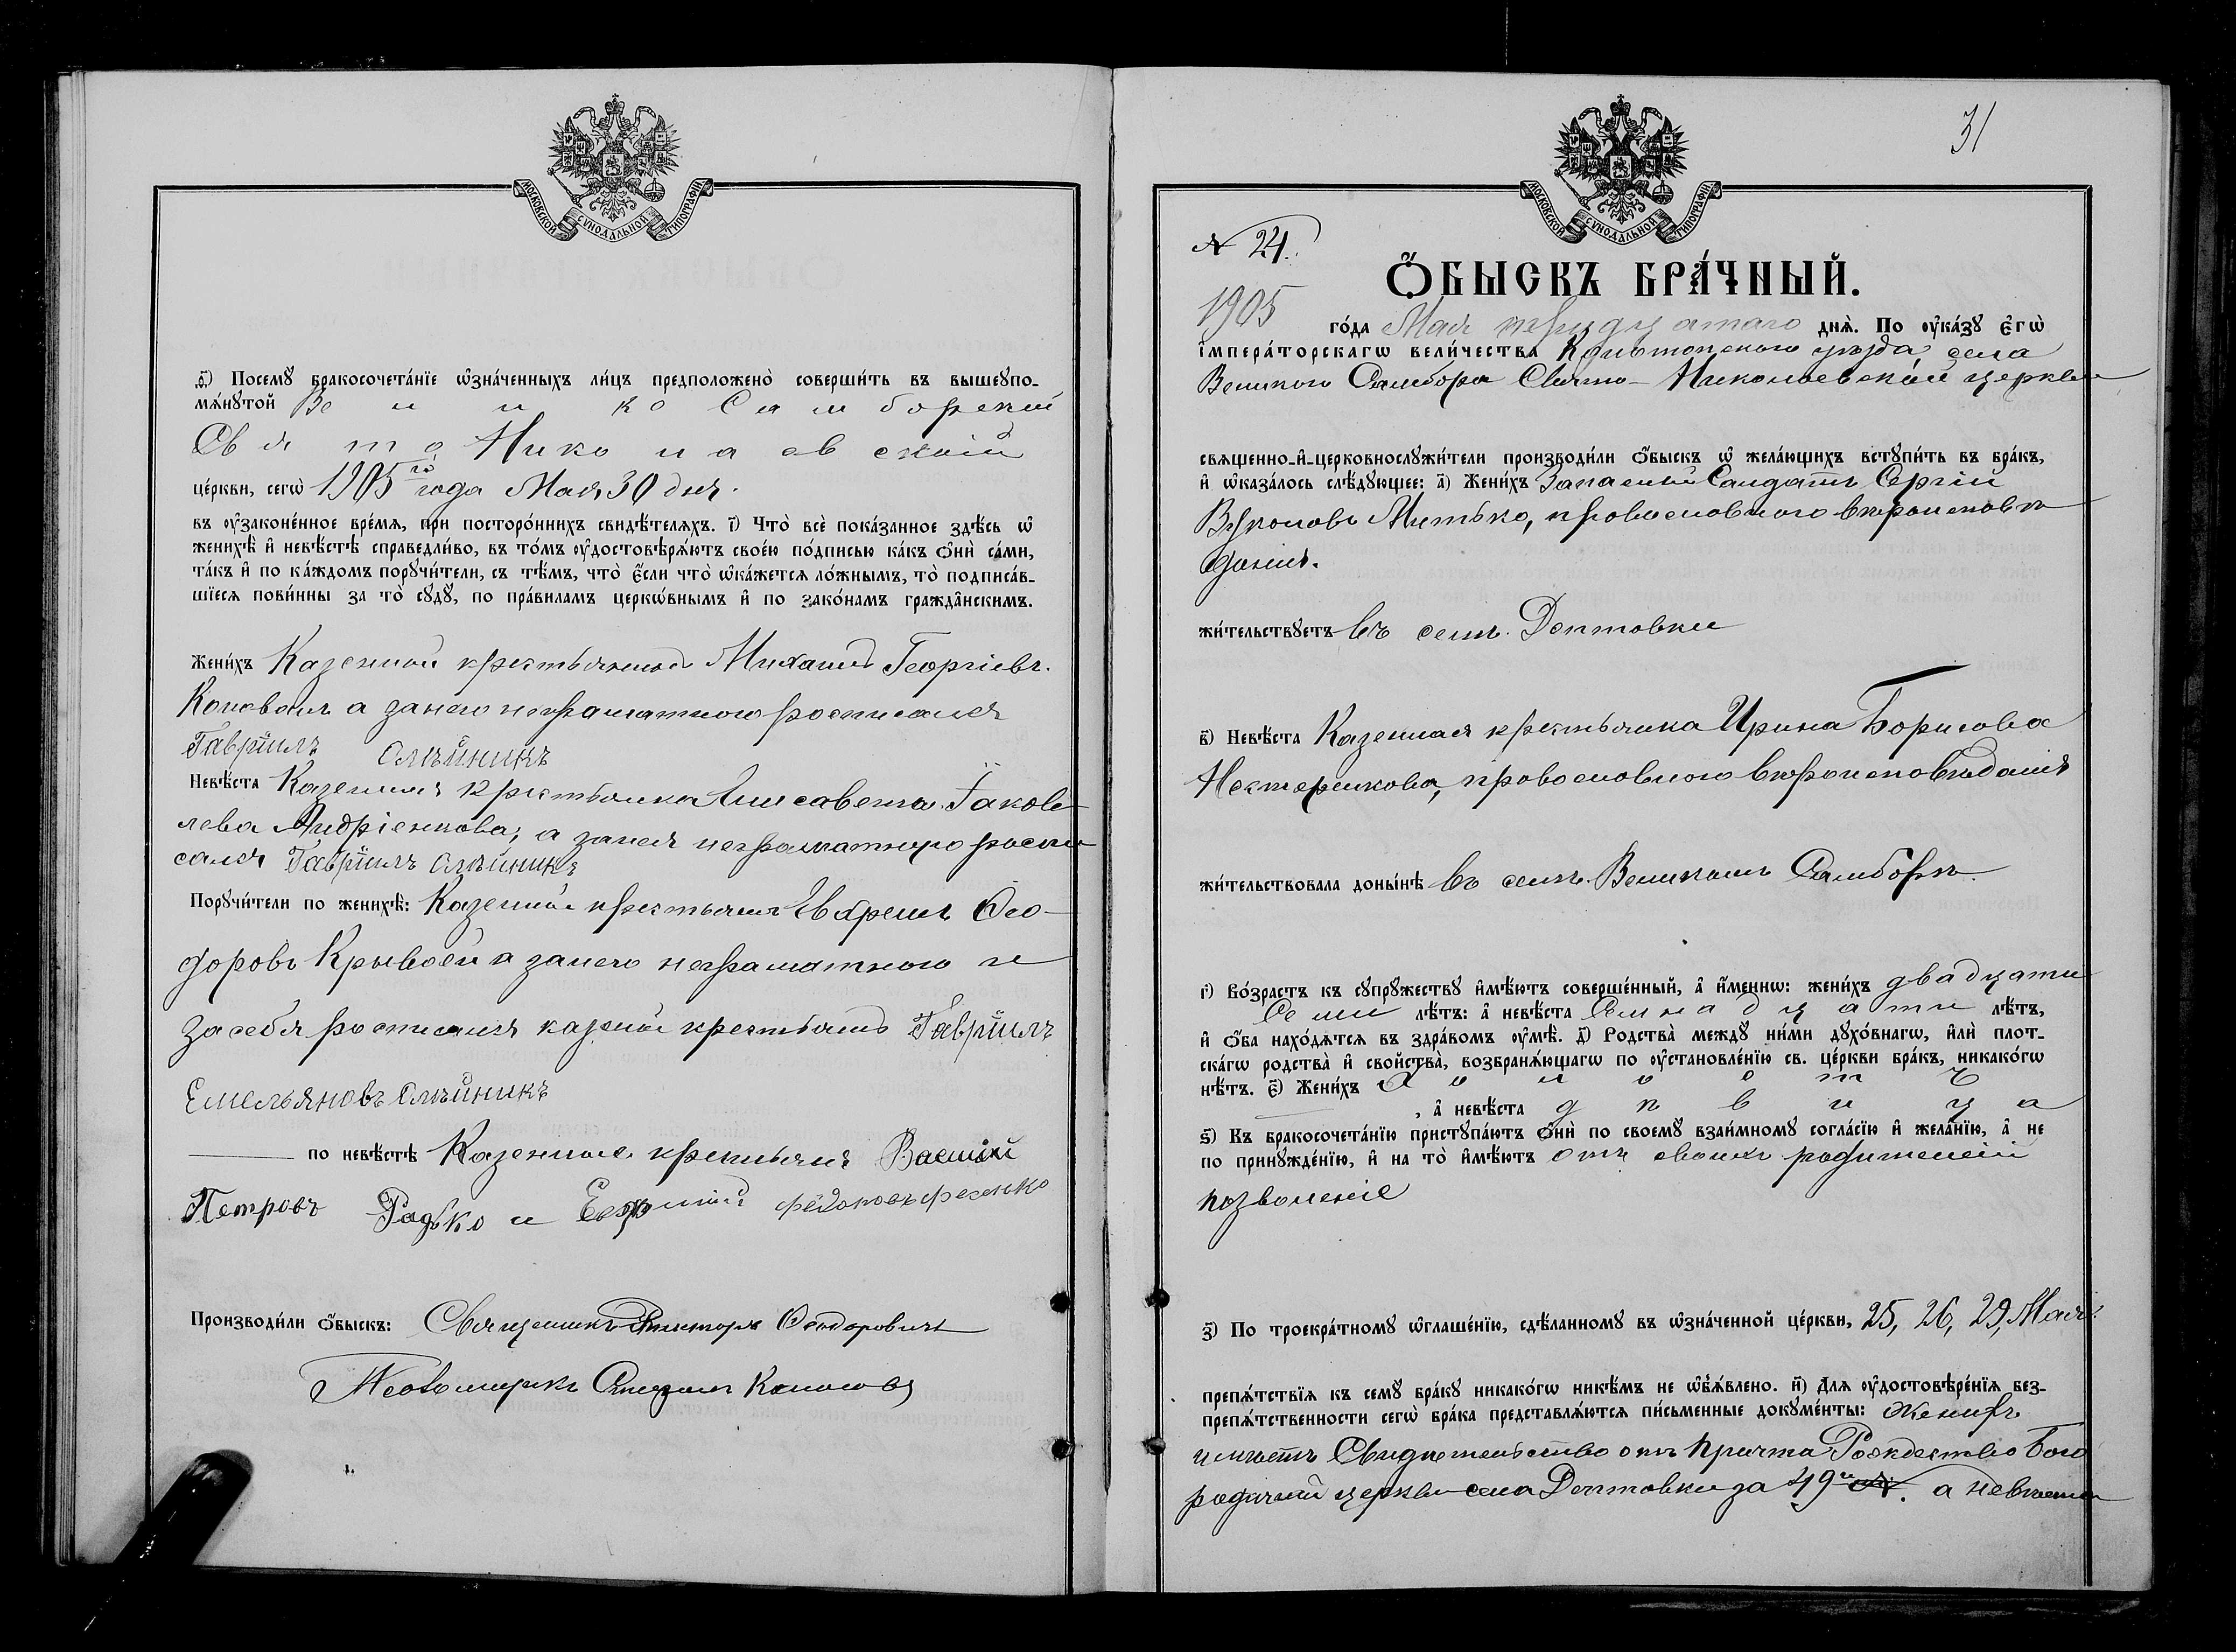 МОСКОВСКОЙ СѴНОДАЛЬНОЙ ТИПОГРАФІИ
ѳ҃) Посемꙋ̀ бракосочета́нїе ѡ҆зна́ченныхъ ли́цъ предположено̀ соверши́ть въ вышеупо-
мѧ́нꙋтой Великосамборской
Свято Николаевской
це́ркви, сегѡ̀ 1905го года Мая 30 дня.
въ ᲂу҆законе́нное вре́мѧ, при посторо́ннихъ свидѣ́телѧхъ. і҃) Что̀ всѐ пока́занное здѣ́сь ѡ҆
женихѣ̀ и҆ невѣ́стѣ справедли́во, въ то́мъ ᲂу҆достовѣрѧ́ютъ свое́ю по́дписью ка́къ ѻ҆нѝ са́ми,
та́къ и҆ по ка́ждомъ порꙋчи́тели, съ тѣ́мъ, что̀ є҆́сли что̀ ѡ҆ка́жетсѧ ло́жнымъ, то̀ подписа́в-
шїесѧ пови́нны за то̀ сꙋдꙋ̀, по пра́виламъ церкѡ́внымъ и҆ по зако́намъ гражда̑нскимъ.
Жени́хъ Казенной крестьянинъ Михаилъ Георгіевъ.
Коновалъ а занего неграматного росписался
Гавріилъ Олѣйникъ
Невѣ́ста Казенная крестьянка Елисавета Іаков-
лева Андріенкова, а занея неграматную роспи
сался Гавріилъ Олѣйникъ
Порꙋчи́тели по женихѣ̀: Казенные крестьяне Ефремъ Ѳео-
доровъ Крывоей а занего неграматного и
за себя росписался казной крестьянъ Гавріилъ
Емельяновъ Олѣйникъ
по невѣ́стѣ Казенные крестьяне Василій
Петровъ Радько и Федоровъ
Производи́ли ѻ҆́быскъ: Священникъ Викторъ Ѳеодоровичъ
Псаломщикъ
31
МОСКОВСКОЙ СѴНОДАЛЬНОЙ ТИПОГРАФІИ
№ 24.
Ѻ҆́БЫСКЪ БРА́ЧНЫЙ.
1905 го́да Мая тридцатаго днѧ̀. По ᲂу҆ка́зꙋ є҆гѡ̀
і҆мпера́торскагѡ вели́чества Конотопского уѣзда, села
Великого Самбора Свято-Николаевской церкви
свѧщенно-и҆-церковнослꙋжи́тели производи́ли ѻ҆́быскъ ѡ҆ жела́ющихъ встꙋпи́ть въ бра́къ,
и҆ ѡ҆каза́лось слѣ́дꙋющее: а҃) Жени́хъ Запасный Солдатъ Сергій
Митько, православного вѣроисповѣ
данія.
жи́тельствꙋетъ въ селѣ Дептовки
в҃) Невѣ́ста Казенная крестьянка Ирина Борисова
Нестеренкова, православного вѣроисповѣданія
жи́тельствовала доны́нѣ въ селѣ Великомъ Самборѣ.
г҃) Во́зрастъ къ сꙋпрꙋ́жествꙋ и҆мѣ́ютъ соверше́нный, а҆ и҆́меннѡ: жени́хъ двадцати
Семи лѣ́тъ: а҆ невѣ́ста Семнадцати лѣ́тъ,
и҆ ѻ҆́ба нахо́дѧтсѧ въ здра́вомъ ᲂу҆мѣ̀. д҃) Родства̀ междꙋ̀ ни́ми дꙋхо́внагѡ, и҆лѝ плот-
ска́гѡ родства̀ и҆ свойства̀, возбранѧ́ющагѡ по ᲂу҆становле́нїю св. це́ркви бра́къ, никако́гѡ
нѣ́тъ. є҃) Жени́хъ Холостъ
, а҆ невѣ́ста дѣвица
ѕ҃) Къ бракосочета́нїю пристꙋпа́ютъ ѻ҆нѝ по своемꙋ̀ взаи́мномꙋ согла́сїю и҆ жела́нїю, а҆ не
по принꙋжде́нїю, и҆ на то̀ и҆мѣ́ютъ отъ своихъ родителей
позволеніе
з҃) По троекра́тномꙋ ѡ҆глаше́нїю, сдѣ́ланномꙋ въ ѡ҆зна́ченной це́ркви, 25, 26, 29, Мая.
препѧ́тствїѧ къ семꙋ̀ бра́кꙋ никако́гѡ никѣ́мъ не ѡ҆б̾ѧ́влено. и҃) Длѧ ᲂу҆достовѣре́нїѧ без-
препѧ́тственности сегѡ̀ бра́ка представлѧ́ютсѧ пи́сьменные докꙋме́нты: Женихъ
имѣетъ Свидѣтельство отъ причта Рождество Бого
родичной церкви села Дептовки за 49 №. а невѣста